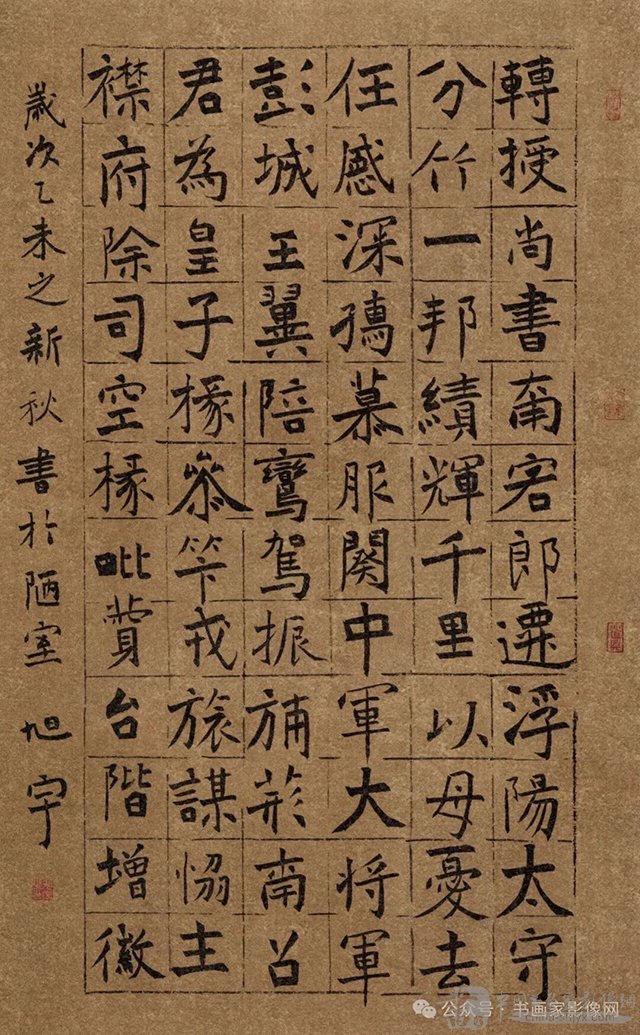 轉授尚書南客郎遷浮陽太守
分竹一邦績輝千里以母憂去
任感深孺慕服闋中軍大將軍
彭城王翼陪鸞駕振旆荊南召
君為皇子掾參笇戎旅謀恊主
襟府除司空掾毗贊台階增徽
歲次乙未之新秋書於陋室 旭宇
公众号·书画家影像网